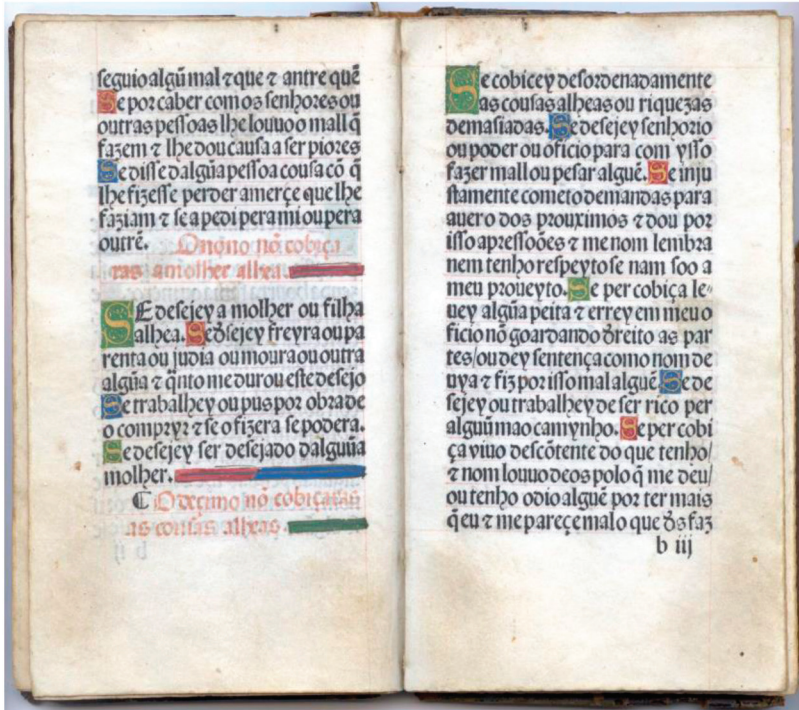 seguio algũ mal ⁊ que ⁊ antre quẽ
Se por caber com os senhores ou
outras pessoas lhe louuo o mall q̃
fazem ⁊ lhe dou causa a ser piores
Se disse dalgũa pessoa cousa cõ q̃
lhe fizesse perder a merçe que lhe
faziam ⁊ se a pedi pera mi ou pera
outrẽ. O nono nõ cobiça
ras a molher alhea.
SE desejey a molher ou filha
alhea. Se desejey freyra ou pa
renta ou judia ou moura ou outra
algũa ⁊ q̃nto me durou este desejo
Se trabalhey ou pus por obra de
o compryr ⁊ se o fizera se podera.
Se desejey ser desejado dalguũa
molher.
¶ O decimo nõ cobiçaras
as cousas alheas.
Se cobicey desordenadamente
as cousas alheas ou riquezas
demasiadas. Se desejey senhorio
ou poder ou oficio para com ysso
fazer mall ou pesar alguẽ. Se inju
stamente cometo demandas para
auer o dos prouximos ⁊ dou por
isso apressoões ⁊ me nom lembra
nem tenho respeyto se nam soo a
meu proueyto. Se per cobiça le⸗
uey algũa peita ⁊ errey em meu o
ficio nõ goardando dereito as par
tes/ou dey sentença como nom de
uya ⁊ fiz por isso mal alguẽ. Se de
sejey ou trabalhey de ser rico per
alguũ mao camynho. Se per cobi
ça viuo descõtente do que tenho/
⁊ nom louuo deos polo q̃ me deu/
ou tenho odio alguẽ por ter mais
q̃ eu ⁊ me pareçe malo que ds faz
b iij